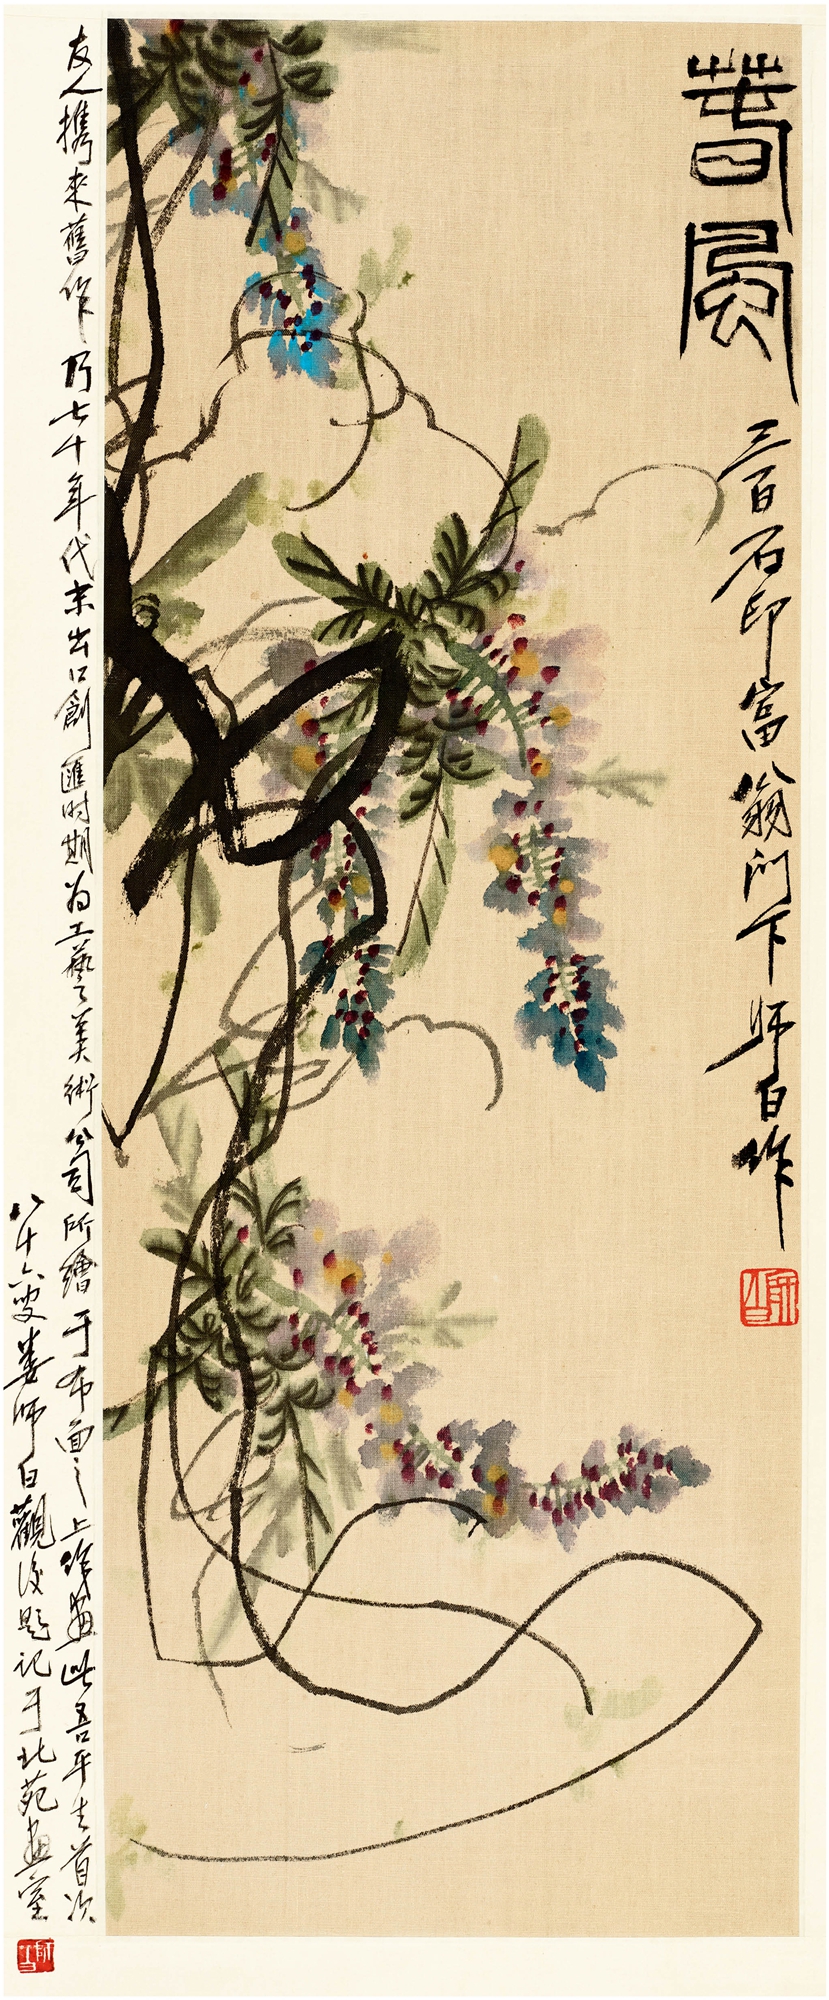 春風
三百石印富翁門下師白作
師白
友人攜來舊作乃七十年代末出口創匯时期为工藝美術公司所繪于布面之上作畫此吾平生首次
八十六叟婁師白觀後題记于北苑畫室
師白